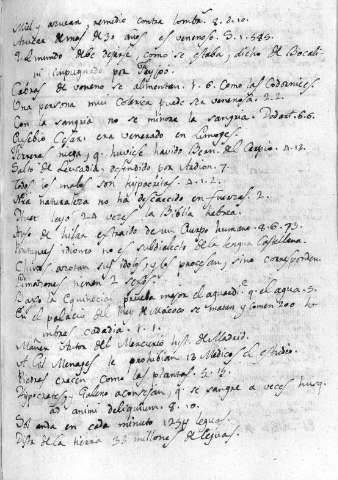 Miel, y azucar, remedio contra lombr. 8. 2. 10.
de mas de 30 años es venenoso. 3. 1. 585.
mundo debe dejarse, como se estaba, dicho de Bocal-
ni impugnado por Feijoo.
Cabras de veneno se alimentan. 1. 6. Como las Codornices.
Una persona mui colerica puede ser venenosa. 2. 2.
Con la sangria no se minora la sangre. Dodart. 6. 6.
Eusebio Cesar. era venerado en Limoges.
niega, q. huviese havido Bern. del Carpio. 4. 13.
Salto de Leucadia, defendido por Stadion. 7.
todos los males son hypocritas. 4. 1. 2.
Na naturaleza no ha descaecido en fuerzas. 2.
leyo 24 veces la Biblia hebrea.
de hilas extraido de un Cuerpo humano. 8. 6. 73.
Portugues idioma no es subdialecto de la lengua Castellana.
Chinos azotan sus idolos, y los procesan, sino corresponden.
tienen 2 sexos.
la Equinecian prueba mejor el aguard. q. el agua. 3.
En el palacio del Rey de Macoco se matan, y comen 200 ho-
mbres cadadia. 1. 1.
Mañer Autor del Mercurio hist. de Madrid.
A Gil Menages le prohibian 13 Medicos el estudio.
Piedras crecen como las plantas. 3. 13.
Hypocrates, y Galeno aconsejan, q. se sangre a veces husq.
ad animi deliquium. 8. 10.
Sol anda en cada minuto leguas.
de la tierra 33 millones de leguas.